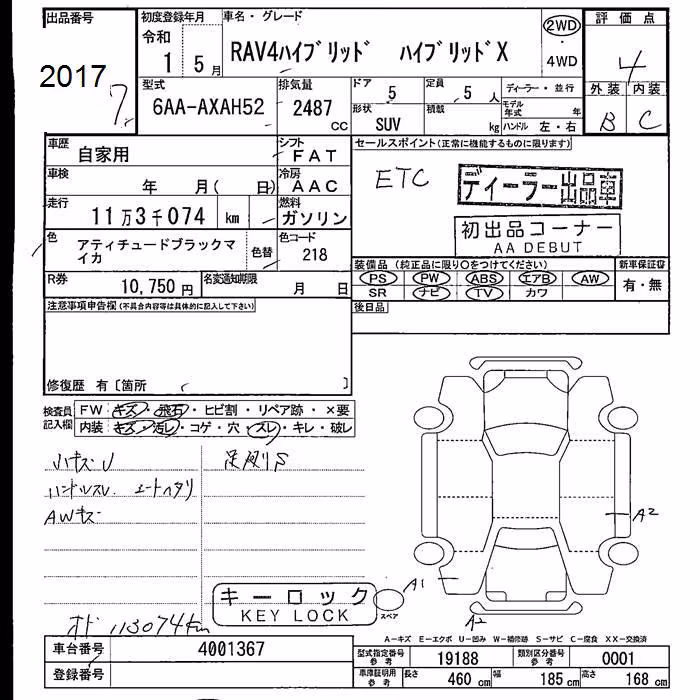 出品番号
2017
7.
初度登録年月
令和
1 5月
車名・グレード
RAV4ハイブリッド ハイブリッドX
2WD
・
4WD
評価点
4
外装 内装
B C
型式
6AA-AXAH52
排気量
2487
CC
ドア 5
定員 5 人
形状 SUV
積載 kg
ディーラー・並行
モデル年式 年
ハンドル 左・右
車歴 自家用
シフト FAT
車検 年 月( 日)
冷房 AAC
走行 11万3千074 km
燃料 ガソリン
色 アティチュードブラックマイカ
色替
色コード 218
R券 10,750 円
名変通知期限 月 日
セールスポイント(正常に機能するものに限ります)
ETC
ディーラー出品車
初出品コーナー
AA DEBUT
装備品(純正品に限り○をつけてください)
PS PW ABS エアB AW
SR ナビ TV カワ
新車保証書
有・無
後日品
注意事項申告欄(不具合内容等は具体的に記入して下さい)
修復歴 有〔箇所 〕
検査員記入欄
FW キズ・飛石・ヒビ割・リペア跡・×要
内装 キズ・汚レ・コゲ・穴・スレ・キレ・破レ
小キズU
足廻りS
ハンドルスレ シートヘタリ
AWキズ
A2
A1
A2
キーロック
KEY LOCK
スペア
オド 113074km
A-キズ E-エクボ U-凹み W-補修跡 S-サビ C-腐食 XX-交換済
車台番号 4001367
登録番号
型式指定番号 参考 19188
類別区分番号 参考 0001
車庫証明用 参考 長さ 460 cm 幅 185 cm 高さ 168 cm